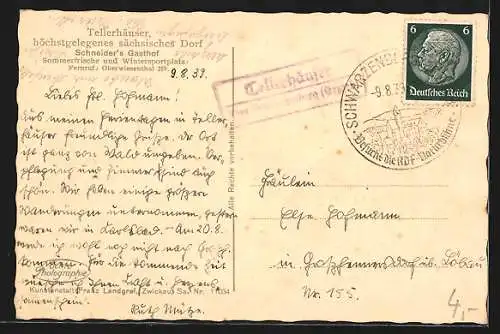 Tellerhäuser,
höchstgelegenes sächsisches Dorf
Schneider's Gasthof
Sommerfrische und Wintersportplatz
Fernruf: Oberwiesenthal
9.8.39
Liebes Frl. Hofmann!
Aus meinen Ferientagen in Teller-
häuser freundliche Grüße. Der Ort
ist ganz von Wald umgeben. Ver-
pflegung und Zimmer sind auch
schön. Wir haben einige größere
Wanderungen unternommen, gestern
waren wir in Karlsbad. Am 20.8.
werde ich wohl noch nicht nach
kommen. Für die kommende Zeit
wünsche ich Ihnen
Ruth
Photographie
Kunstanstalt Franz Landgraf, Zwickau Sa., Nr. 11334
Alle Rechte vorbehalten
Tellerhäuser
SCHWARZENBE
-9.8.39
Besucht die KDF-
6 6
Deutsches Reich
Fräulein
Else Hofmann
in Großhennersdorf üb. Löbau
Nr. 155.
4,-